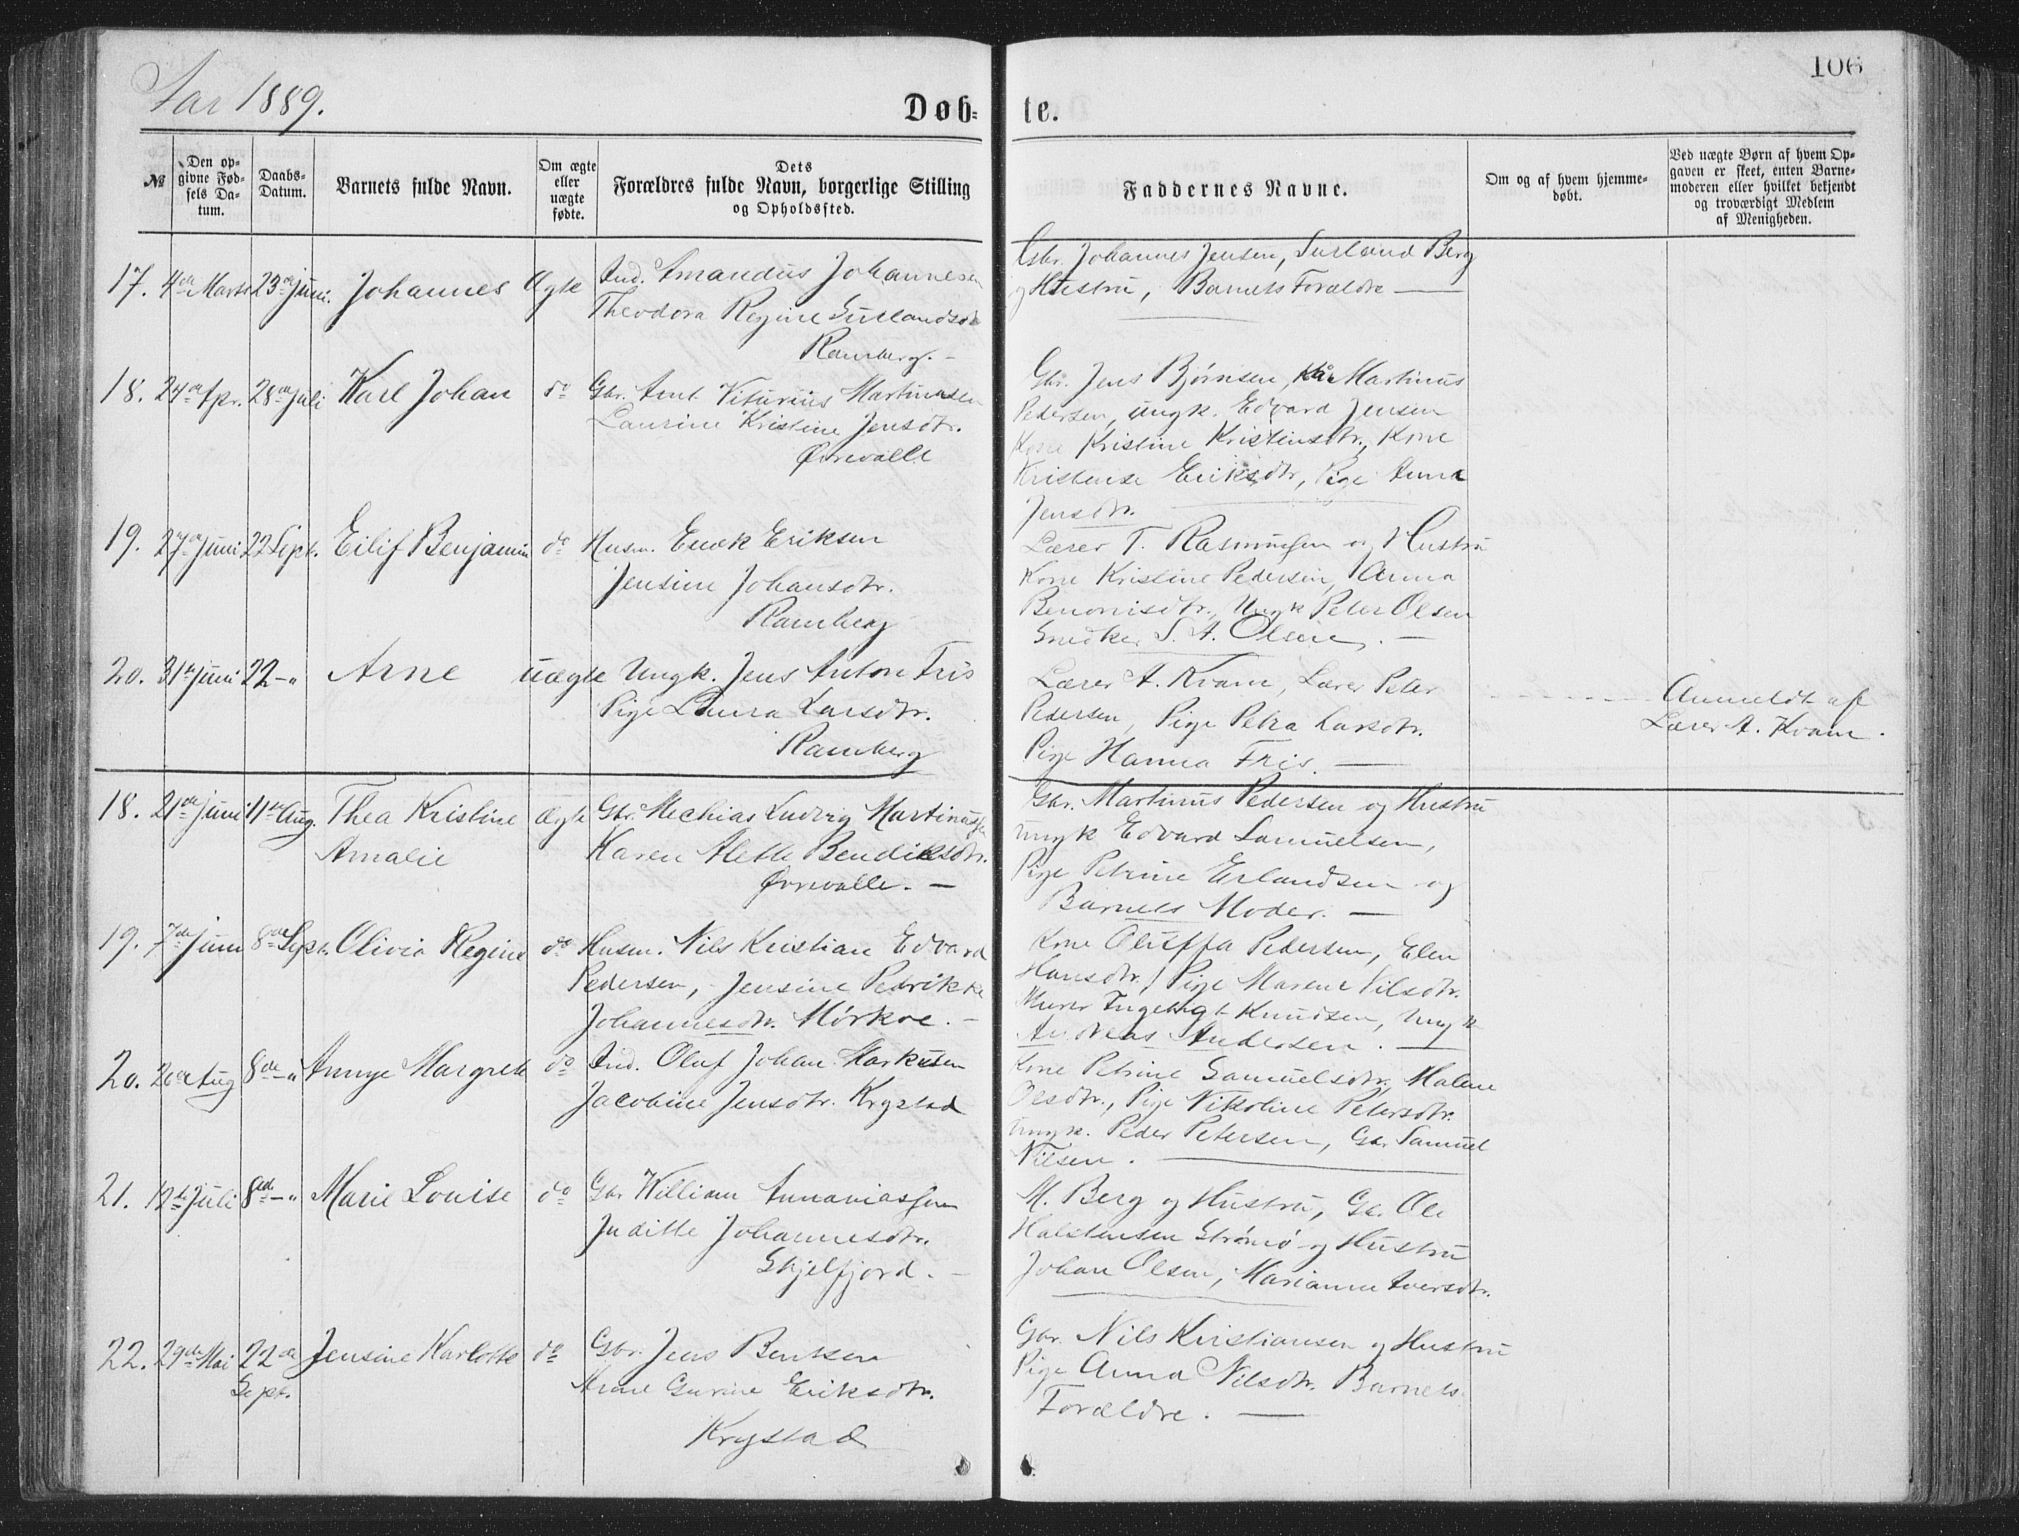 Aar 1889.
106
Døb-
te.
№
Den opgivne Fødsels Datum.
Daabs-Datum.
Barnets fulde Navn.
Om ægte eller uægte fødte.
Dets
Forældres fulde Navn, borgerlige Stilling
og Opholdssted.
Faddernes Navne.
Om og af hvem hjemmedøbt.
Ved uægte Børn af hvem Opgaven er skeet, enten Barnemoderen eller hvilket bekjendt og troværdigt Medlem af Menigheden.
17. 4de Marts 23de Juni. Johannes Ægte Ind. Amandus Johannesen
Theodora Regine
Ramberg. —
Gbr. Johannes Jensen, Berg
og Hustru, Barnets Forældre —
18. 24de Apr. 28de Juli Karl Johan do Gbr. Arnt Martinusen
Laurine Kristine Jensdtr.
Ørrevalle
Gbr. Jens Bjørnsen, Martinus
Pedersen, ungk. Edvard Jensen
Kone Kristine Kristensdtr., Kone
Kristense Eriksdtr, Pige Anna
Jensdtr.
19. 27de Juni 22 Sept. Eilif Benjamin do Husm. Enok Eriksen
Jensine Johansdtr.
Ramberg
Lærer T. Rasmussen og Hustru
Kone Kristine Pedersen, Anna
Benonisdtr., Ungk Peter Olsen
Snedker S. A. Olsen. —
20. 31te Juni 22 —„ Arne uægte Ungk. Jens Anton Fris
Pige Laura Larsdtr.
Ramberg
Lærer A. Kvam, Lærer Peter
Pedersen, Pige Petra Larsdtr.
Pige Hanna Fris. —
Anmeldt af
Lærer A. Kvam.
18. 21de Juni 11te Aug. Thea Kristine Ægte Gbr. Mechias Ludvig Martinussen
Amalie
Karen Alette Bendiksdtr.
Ørrevalle. —
Gbr. Martinus Pedersen og Hustru
ungk Edvard Samuelsen,
Pige Petrine Erlandsen og
Barnets Moder. —
19. 7de Juni 8de Sept. Olivia Regine do Husm. Nils Kristian Edvard
Pedersen, Jensine Pedrikke
Johannesdtr. Mørkve. —
Kone Oluffa Pedersen, Elen
Hansdtr., Pige Marene Nilsdtr.
Murer Ingebrigt Knudsen, Ungk
Andreas Andersen. —
20. 20de Aug 8de —„ Annye Margrete do Ind. Oluf Johan Markusen
Jacobine Jensdtr. Krystad
Kone Petrine Samuelsdtr, Malene
Olsdtr., Pige Nikoline Petersdtr.
ungk. Peder Petersen, Gbr. Samuel
Nilsen. —
21. 12te Juli 8de —„ Marie Louise do Gbr William Annaniassen
Juditte Johannesdtr.
Skjelfjord. —
M. Berg og Hustru, Gbr. Ole
Halstensen Strømø og Hustru
Johan Olsen, Marianne Iversdtr.
22. 29de Mai 22de Jensine Karlotte do Gbr. Jens Bentsen
Sept.
Anne Gurine Eriksdtr.
Krystad
Gbr. Nils Kristiansen og Hustru
Pige Anna Nilsdtr. Barnets
Forældre. —